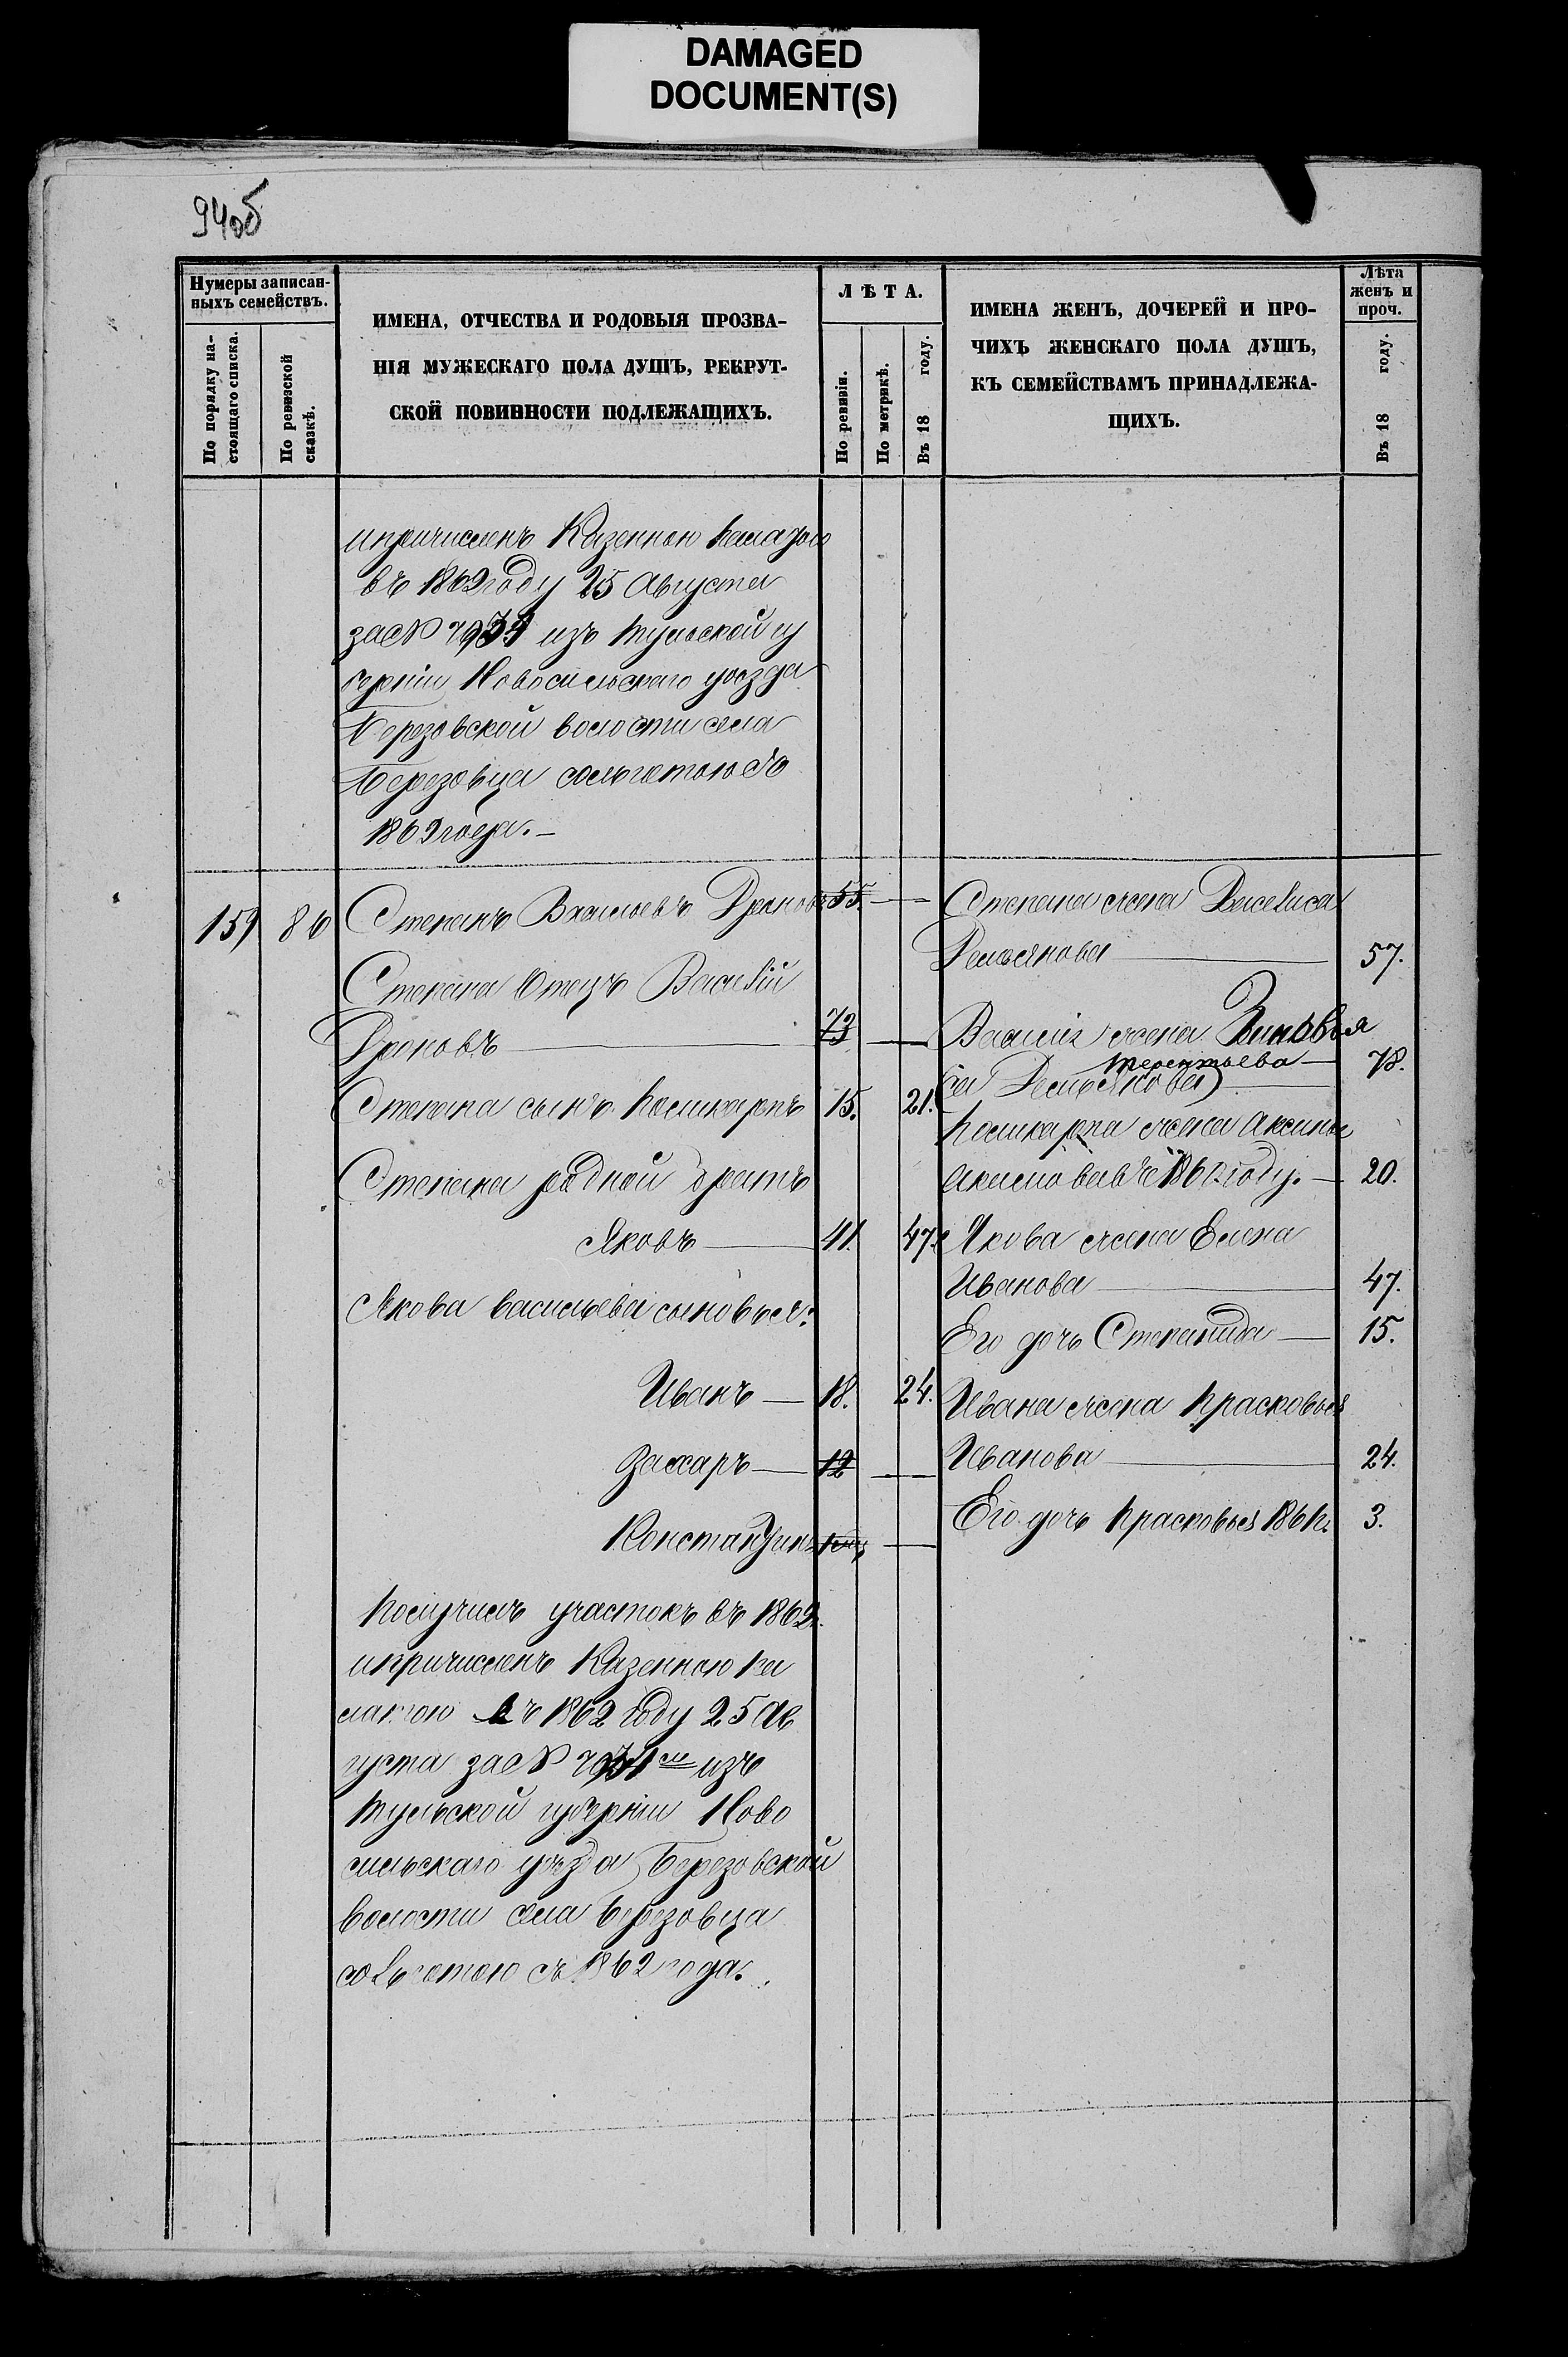 DAMAGED
DOCUMENT(S)
94об
Нумеры записан-
ныхъ семействъ.
По порядку на-
стоящаго списка.
По ревизской
сказкѣ.
ИМЕНА, ОТЧЕСТВА И РОДОВЫЯ ПРОЗВА-
НІЯ МУЖЕСКАГО ПОЛА ДУШЪ, РЕКРУТ-
СКОЙ ПОВИННОСТИ ПОДЛЕЖАЩИХЪ.
ЛѢТА.
По ревизіи.
По метрикѣ.
Въ 18 году.
ИМЕНА ЖЕНЪ, ДОЧЕРЕЙ И ПРО-
ЧИХЪ ЖЕНСКАГО ПОЛА ДУШЪ,
КЪ СЕМЕЙСТВАМЪ ПРИНАДЛЕЖА-
ЩИХЪ.
Лѣта
женъ и
проч.
Въ 18 году.
и причисленъ Казенною палатою
въ 1862 году 25 Августа
за № изъ Тульской гу
берніи Новосильскаго уѣзда
Березовской волости села
Березовца со льготою съ
1862 года. –
159 86 Степанъ Васильевъ Дроновъ 55. —
Степана Отецъ Василій
Дроновъ — 73 —
Степана сынъ Поликарпъ 15. 21.
Степана родной братъ
Яковъ — 41. 47.
Якова Васильева сыновья:
Иванъ — 18. 24.
Захаръ — 12 —
Константинъ —
Получилъ участокъ въ 1862.
и причисленъ Казенною па
латою въ 1862 году 25 Ав
густа за № изъ
Тульской губерніи Ново
сильскаго уѣзда Березовской
волости села Березовца
со льготою съ 1862 года.
Степана жена Василиса
Демьянова — 57.
Василія жена Зиновья
Терентьева — 78.
Демьянова)
Поликарпа жена Аксинья
въ 186 году. — 20.
Якова жена Елена
Иванова — 47.
Его дочь Степанида — 15.
Ивана жена Прасковья
Иванова — 24.
Его дочь Прасковья 3.